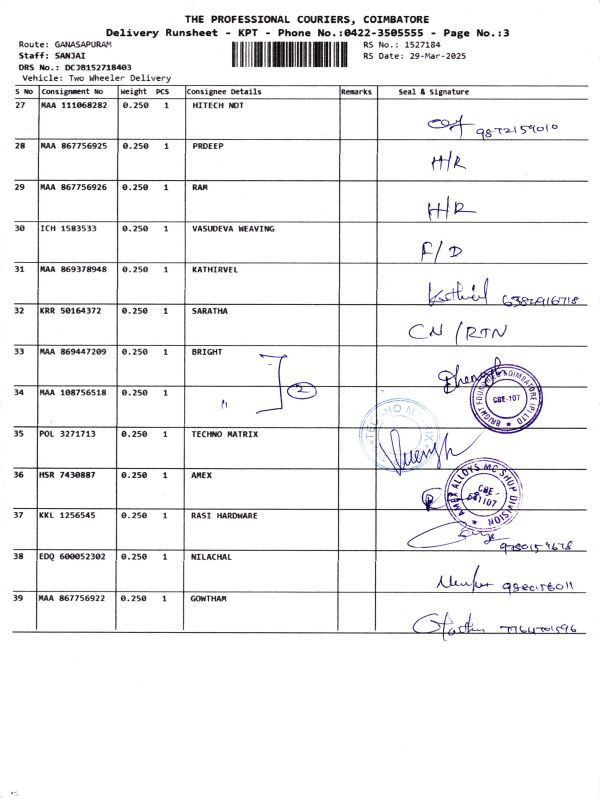 THE PROFESSIONAL COURIERS, COIMBATORE
Delivery Runsheet - KPT - Phone No.:0422-3505555 - Page No.:3
Route: GANASAPURAM RS No.: 1527184
Staff: SANJAI RS Date: 29-Mar-2025
DRS No.: DCJB152718403
Vehicle: Two Wheeler Delivery
S No Consignment No Weight PCS Consignee Details Remarks Seal & Signature
27 MAA 111068282 0.250 1 HITECH NDT
28 MAA 867756925 0.250 1 PRDEEP H/R
29 MAA 867756926 0.250 1 RAM H/R
30 ICH 1583533 0.250 1 VASUDEVA WEAVING F/D
31 MAA 869378948 0.250 1 KATHIRVEL
32 KRR 50164372 0.250 1 SARATHA CN/RTN
33 MAA 869447209 0.250 1 BRIGHT
34 MAA 108756518 0.250 1 " 2
35 POL 3271713 0.250 1 TECHNO MATRIX
36 HSR 7430887 0.250 1 AMEX
37 KKL 1256545 0.250 1 RASI HARDWARE
38 EDQ 600052302 0.250 1 NILACHAL
39 MAA 867756922 0.250 1 GOWTHAM